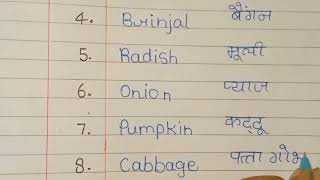 4. Brinjal बैंगन
5. Radish मूली
6. Onion प्याज
7. Pumpkin कद्दू
8. Cabbage पत्ता